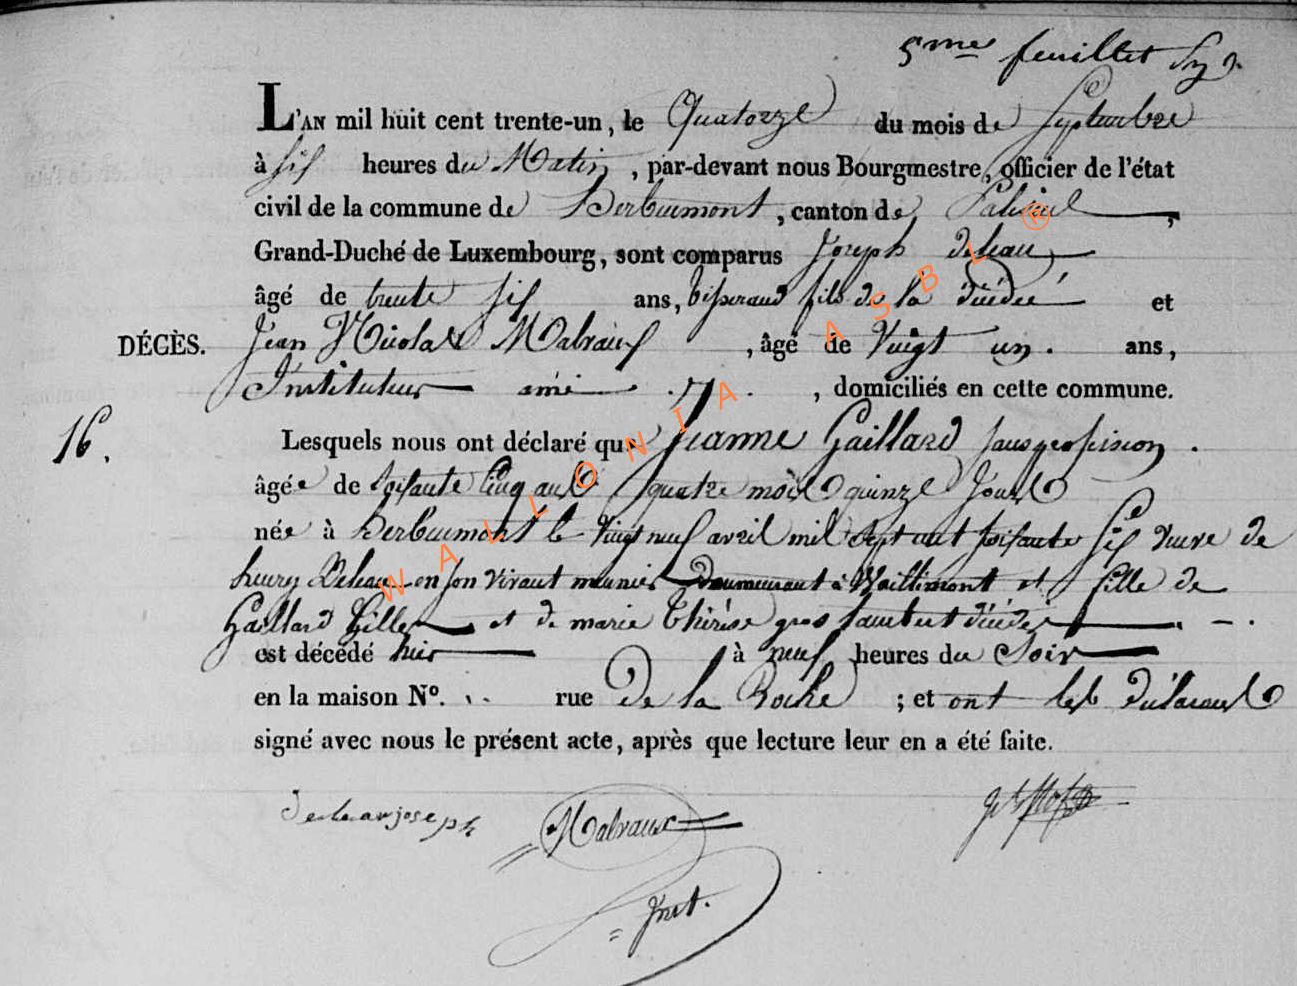 5me feuillet
L'AN mil huit cent trente-un, le Quatorze du mois de Septembre
à six heures du Matin, par-devant nous Bourgmestre, officier de l'état
civil de la commune de Herbeumont, canton de Paliseul,
Grand-Duché de Luxembourg, sont comparus Joseph deleau
âgé de trente six ans, tisserand fils de la décédée et
DÉCÈS. Jean Nicolas Malvaux, âgé de Vingt un. ans,
Instituteur ami, domiciliés en cette commune.
16. Lesquels nous ont déclaré que Jeanne Gaillard sans profession.
âgée de soixante Cinq ans quatre mois quinze Jours
née à Herbeumont le Vingt neuf avril mil sept cent soixante six veuve de
henry Deleau en son vivant meunier Demeurant à Waillimont et fille de
Gaillard Gilles et de marie Thérèse gros lambert décédés
est décédé hier à neuf heures du Soir
en la maison N°. rue De la Roche; et ont les déclarants
signé avec nous le présent acte, après que lecture leur en a été faite.
deleau joseph Malvaux
Inst.
WALLONIA ASBL ®